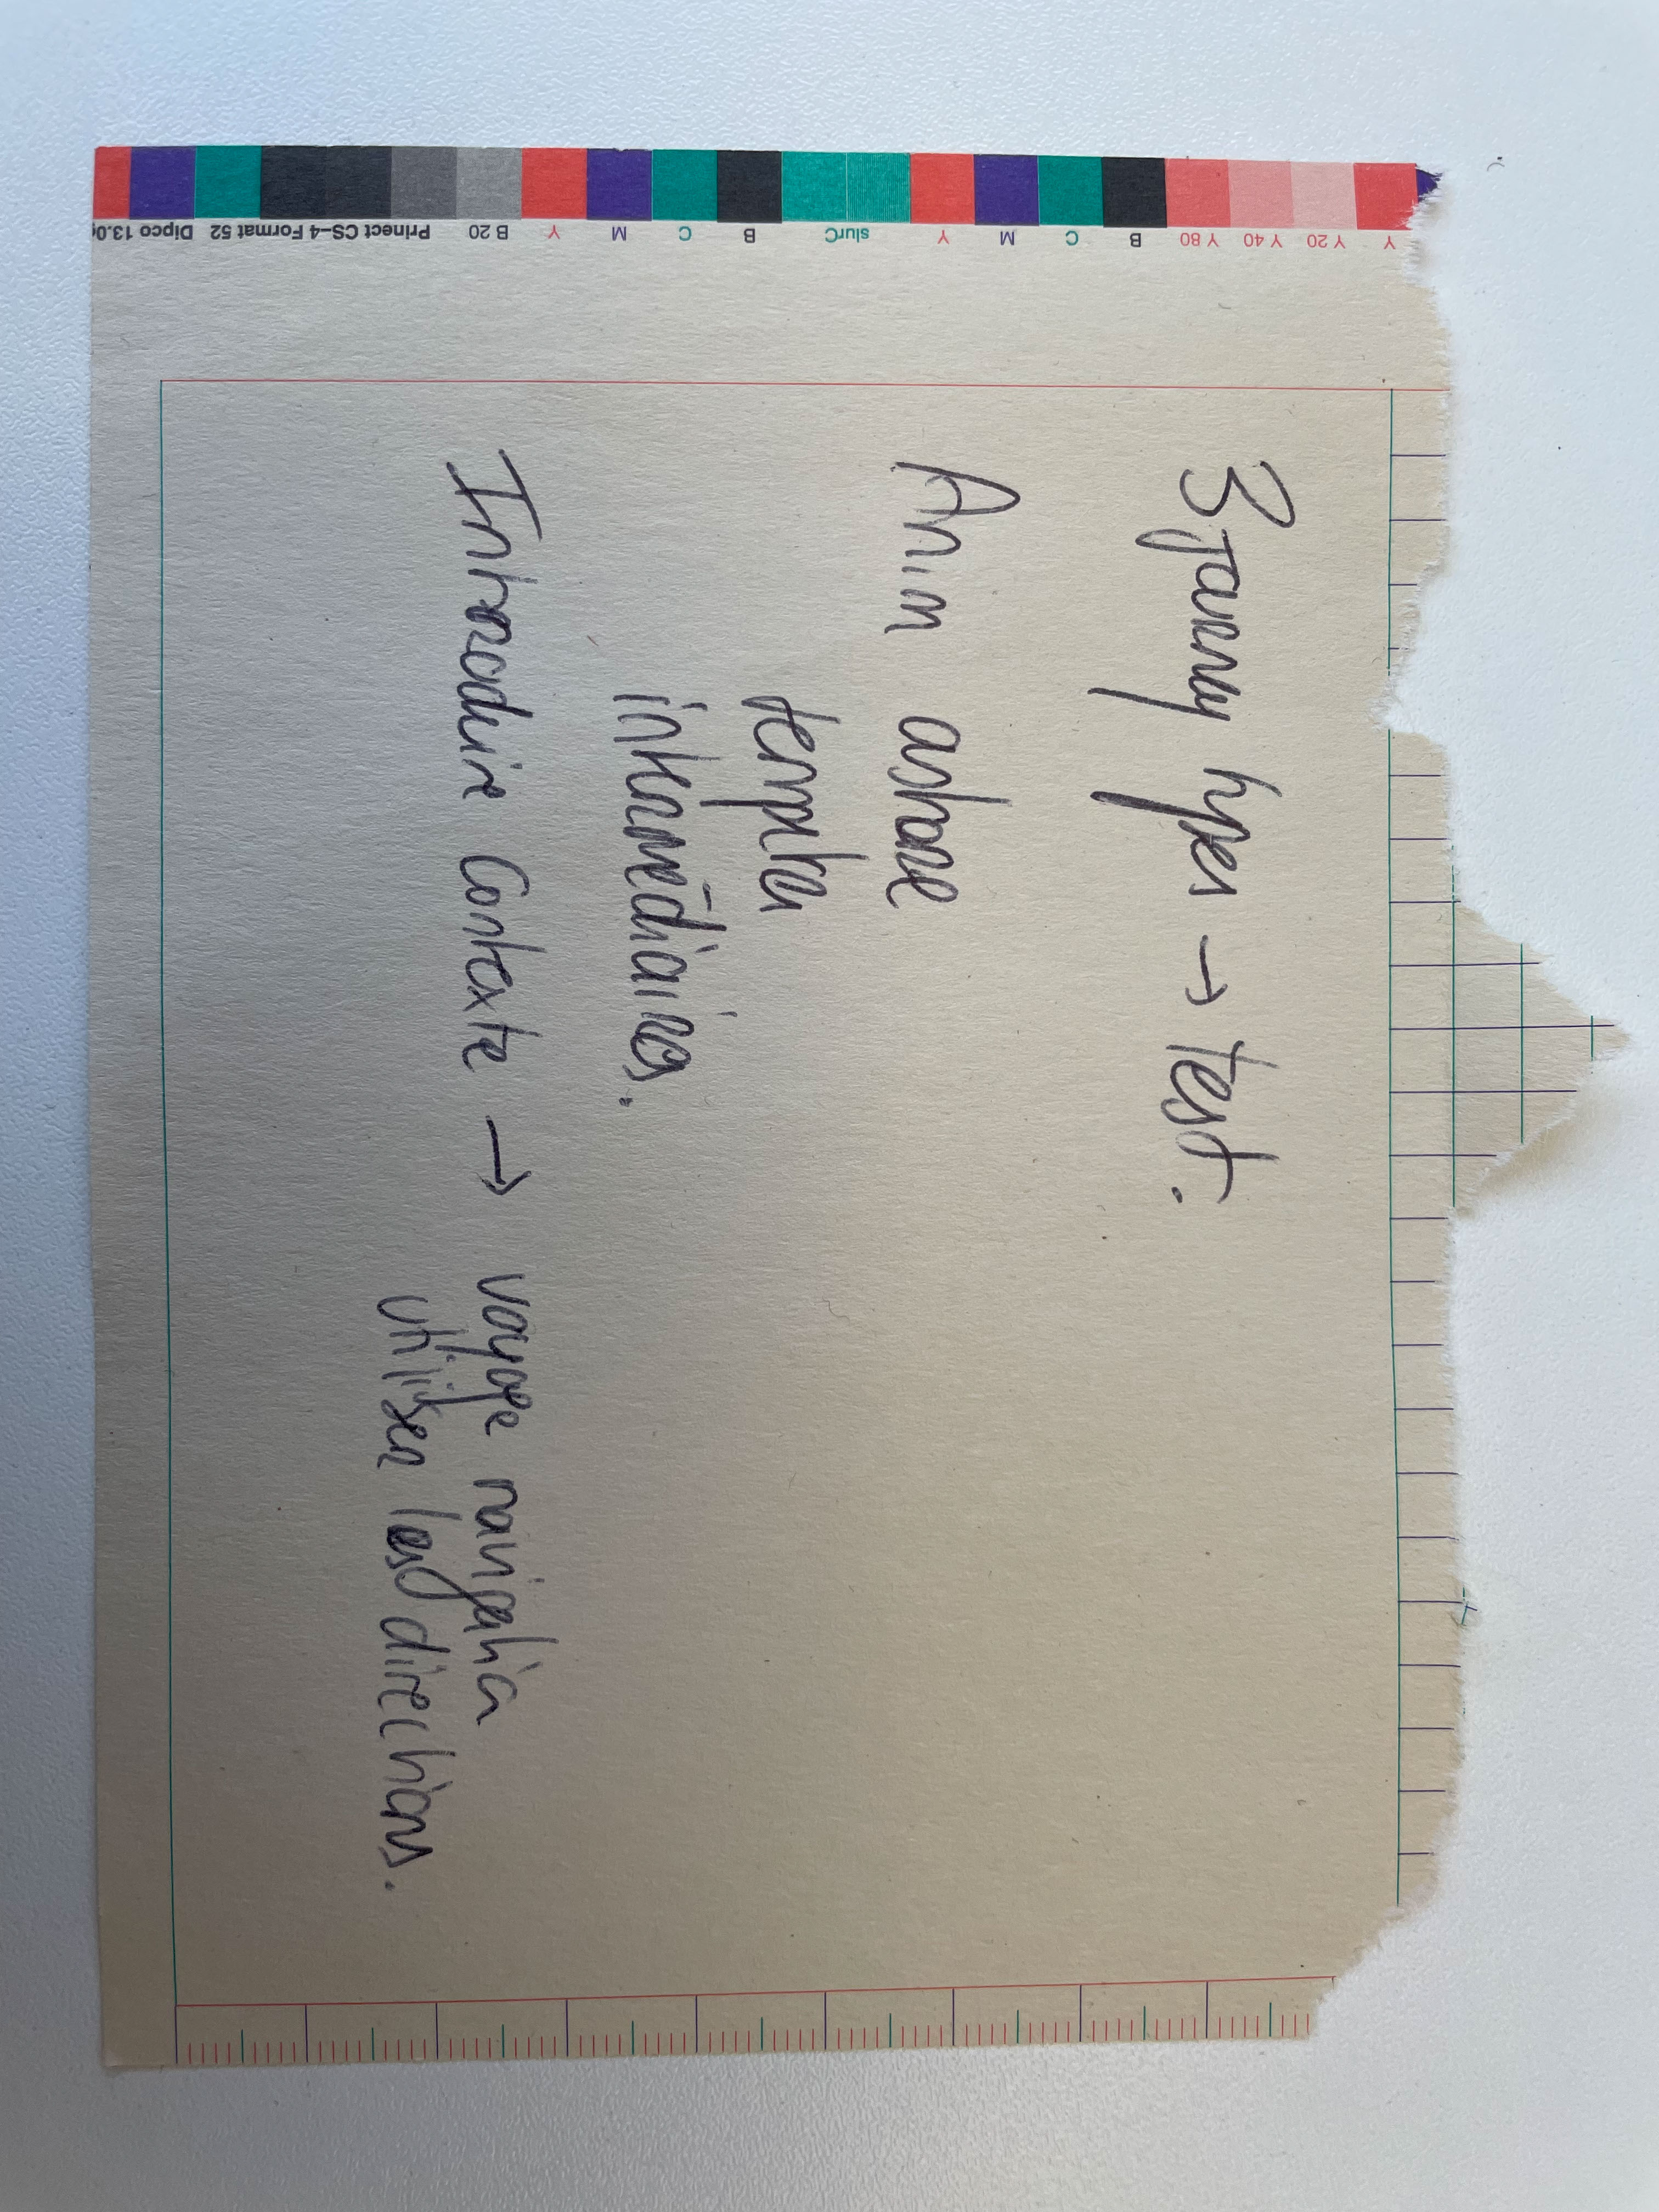 → test.
Anim
intermédiaires.
Introduire Contexte → voyage navigation
utiliser les directions.
Y Y 20 Y 40 Y 80 B C M Y slurC B C M Y B 20 Prinect CS-4 Format 52 Dipco 13.0